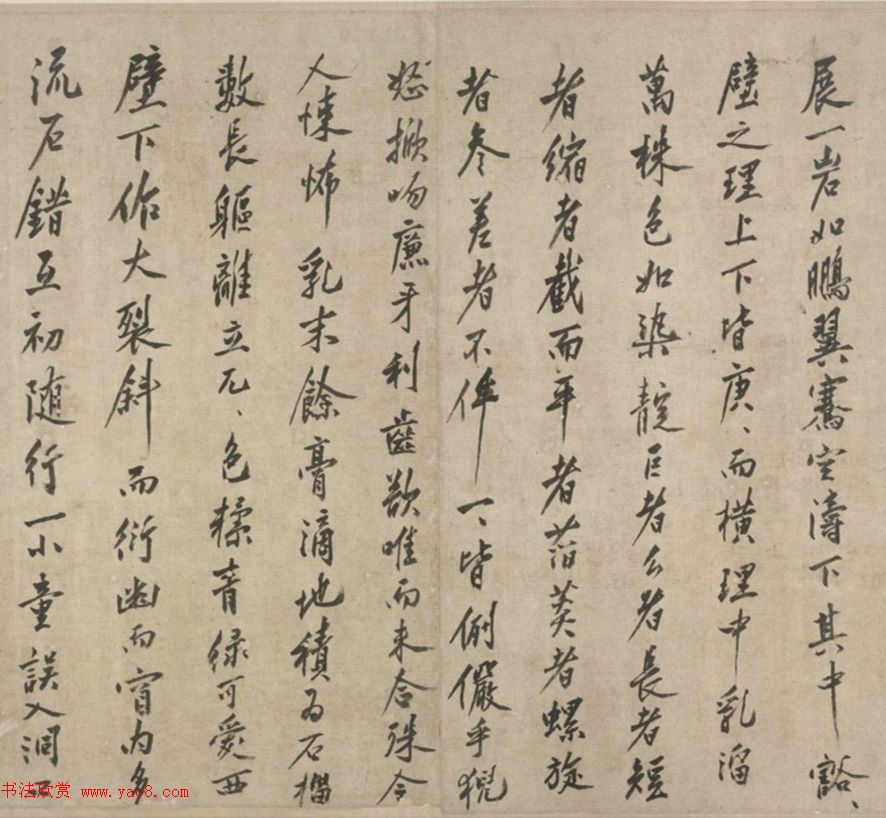 展一岩如鵬翼騫空濤下其中豁、
壁之理上下皆庚、而橫理中乳溜
萬株色如染靛巨者么者長者短
者縮者截而平者者螺旋
者參差者不侔一、皆倒儼乎猊
怒掀吻廉牙利齒欲唯而来合殊令
人悚怖乳末餘膏滴地積為石榴
數長軀離立兀、色糅青緑可愛西
壁下作大裂斜而衍幽而窅内多
流石錯互初随行一小童誤入洞
书法欣赏 www.yac8.com